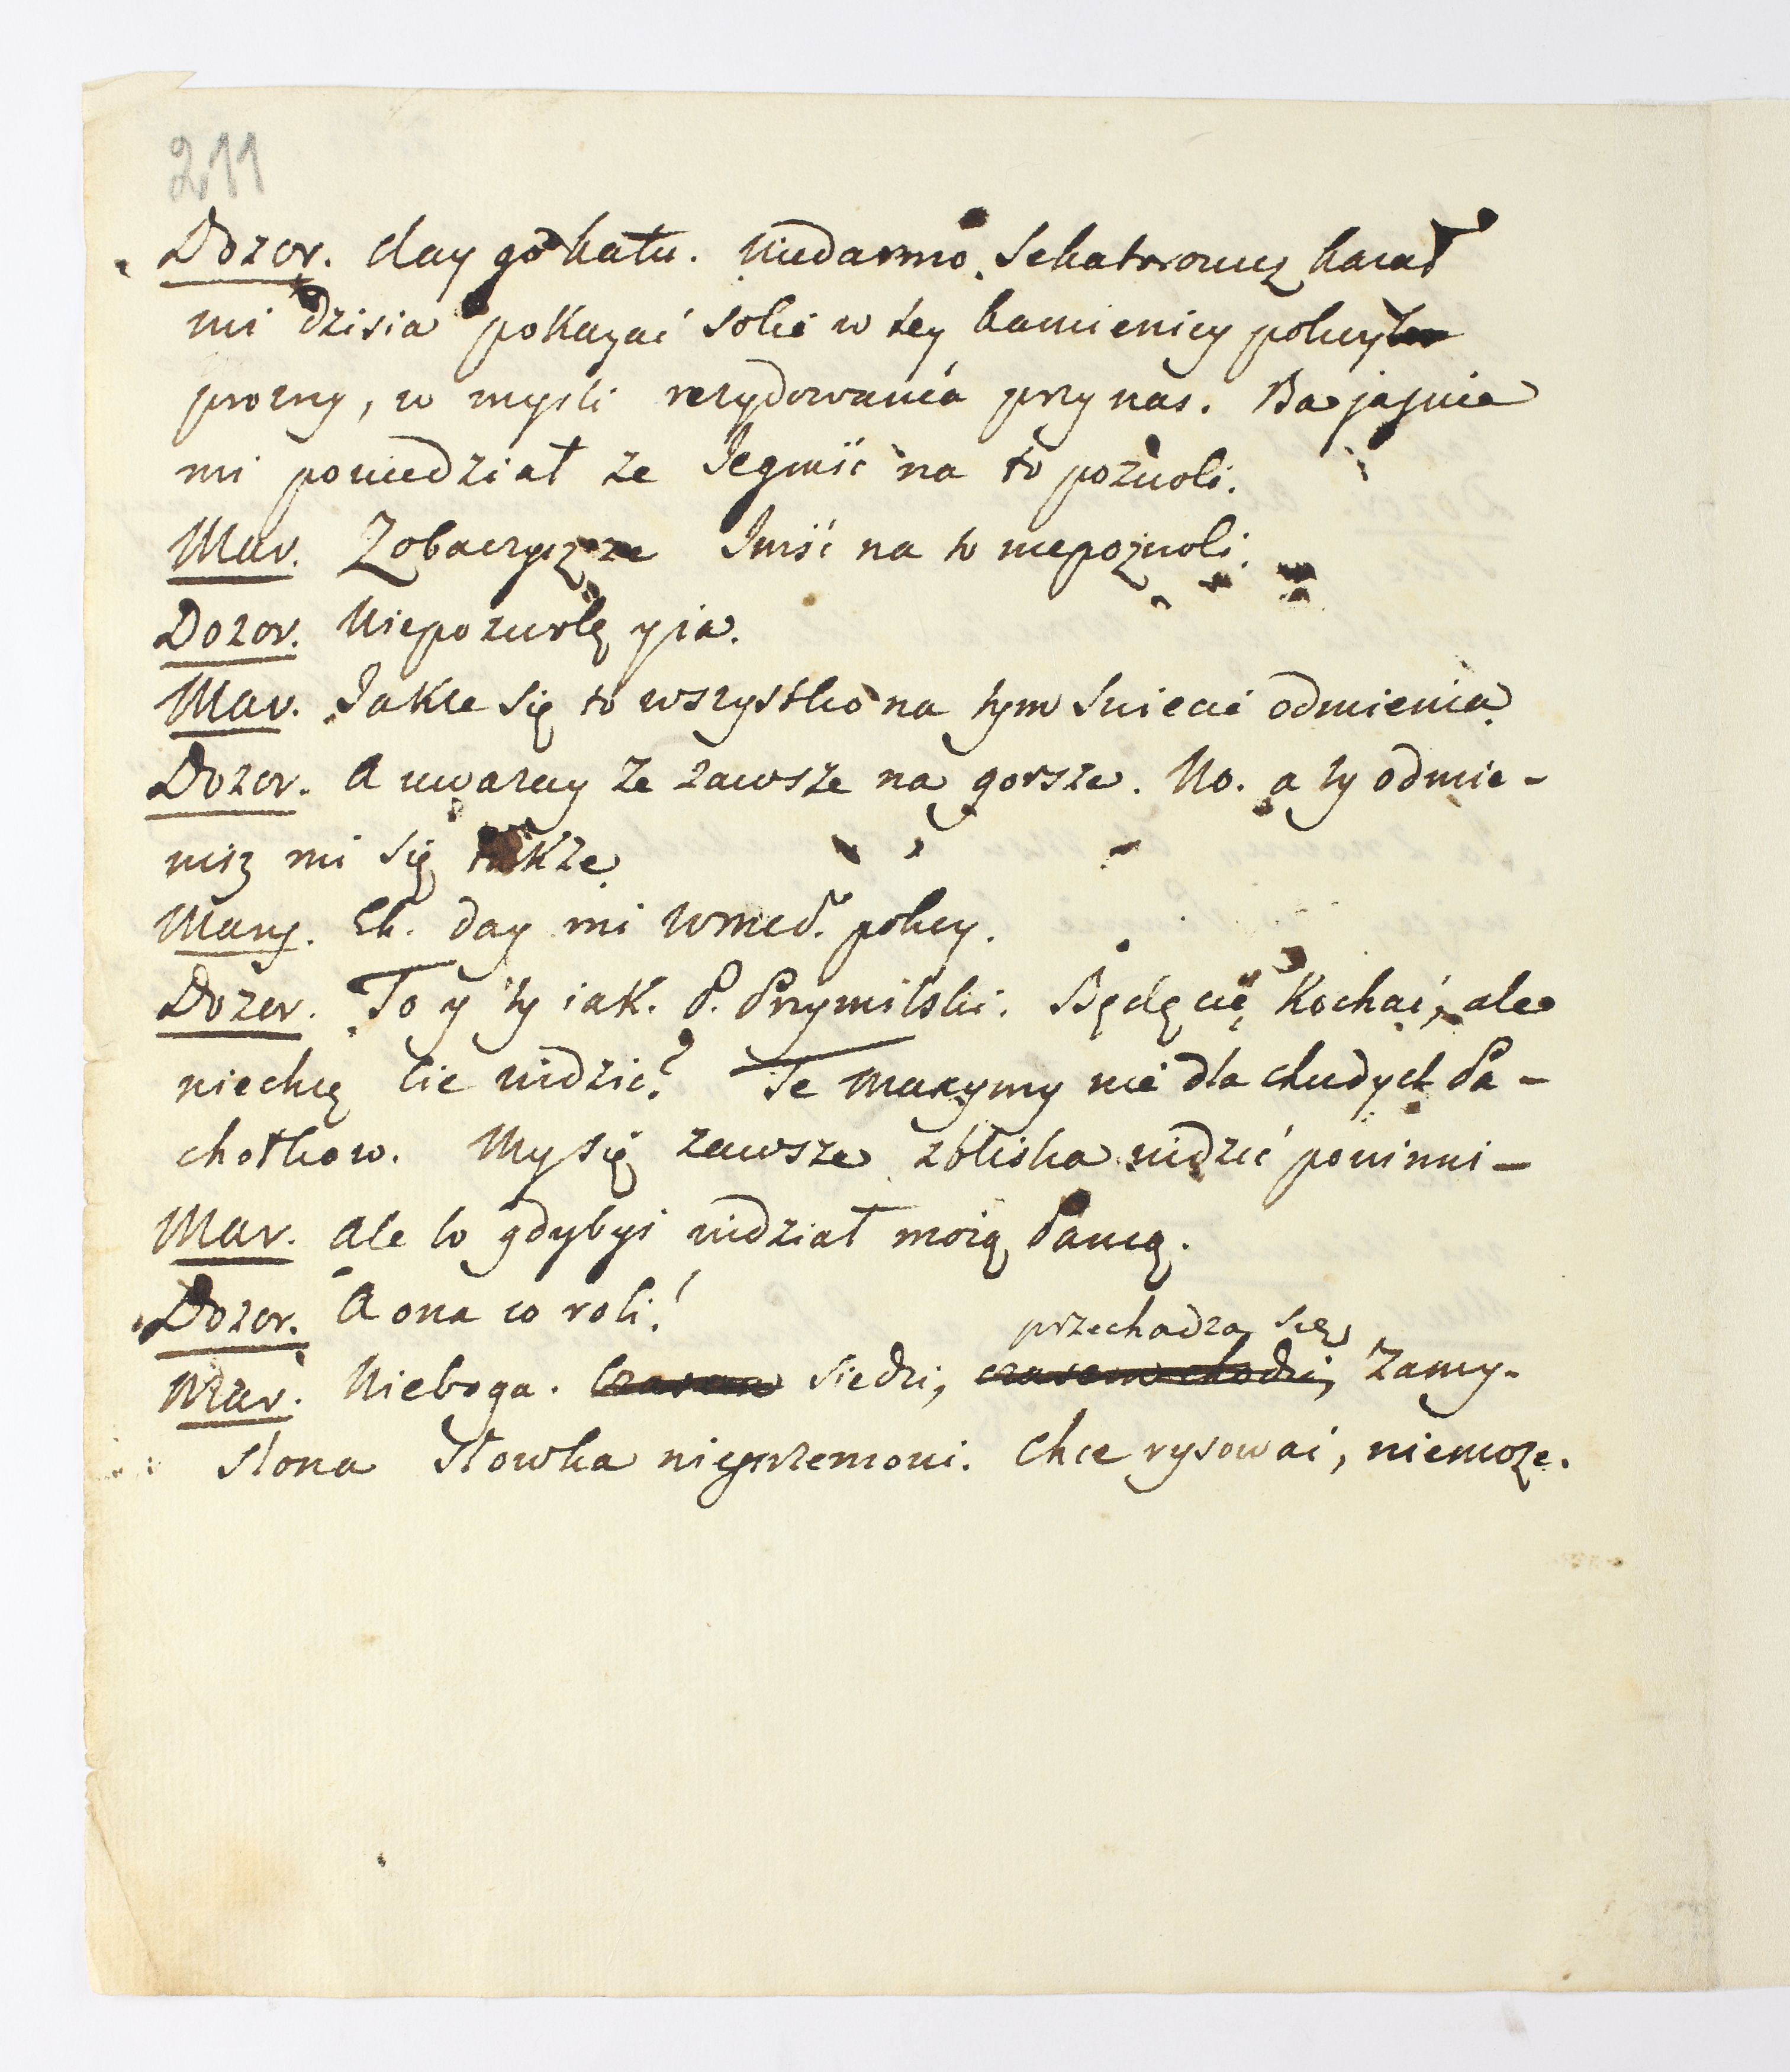 211
Dozor. day go katu. Niedarmo Sekatorowicz kazał
mi dzisia pokazać sobie w tey kamienicy pokoy
prozny, w mysli rezydowania przy nas. Ba jasnie
mi powiedział ze Jegmść na to pozwoli.
Mar. Zobaczysz ze Imść na to niepozwoli.
Dozor. Niepozwolę y ia.
Mar. Jakze się to wszystko na tym swiecie odmienia
Dozor. A uwazay ze zawsze na gorsze. No. a ty odmie-
nisz mi się takze
Mary. Eh. day mi wmed. pokoy.
Dozor. To y ty iak. P. Przymilski. Będę cię kochać, ale
niechcę cie widzieć? Te maxymy nie dla chudych Pa-
chołkow. My się zawsze zbliska widzieć powinni-
Mar. Ale to gdybyś widział moią Panią.
Dozor. A ona co robi!
przechadza się
Mar. Nieboga. Czasem siedzi, czasem chodzi, Zamy-
slona słowka nieprzemowi. Chce rysować, niemoze.